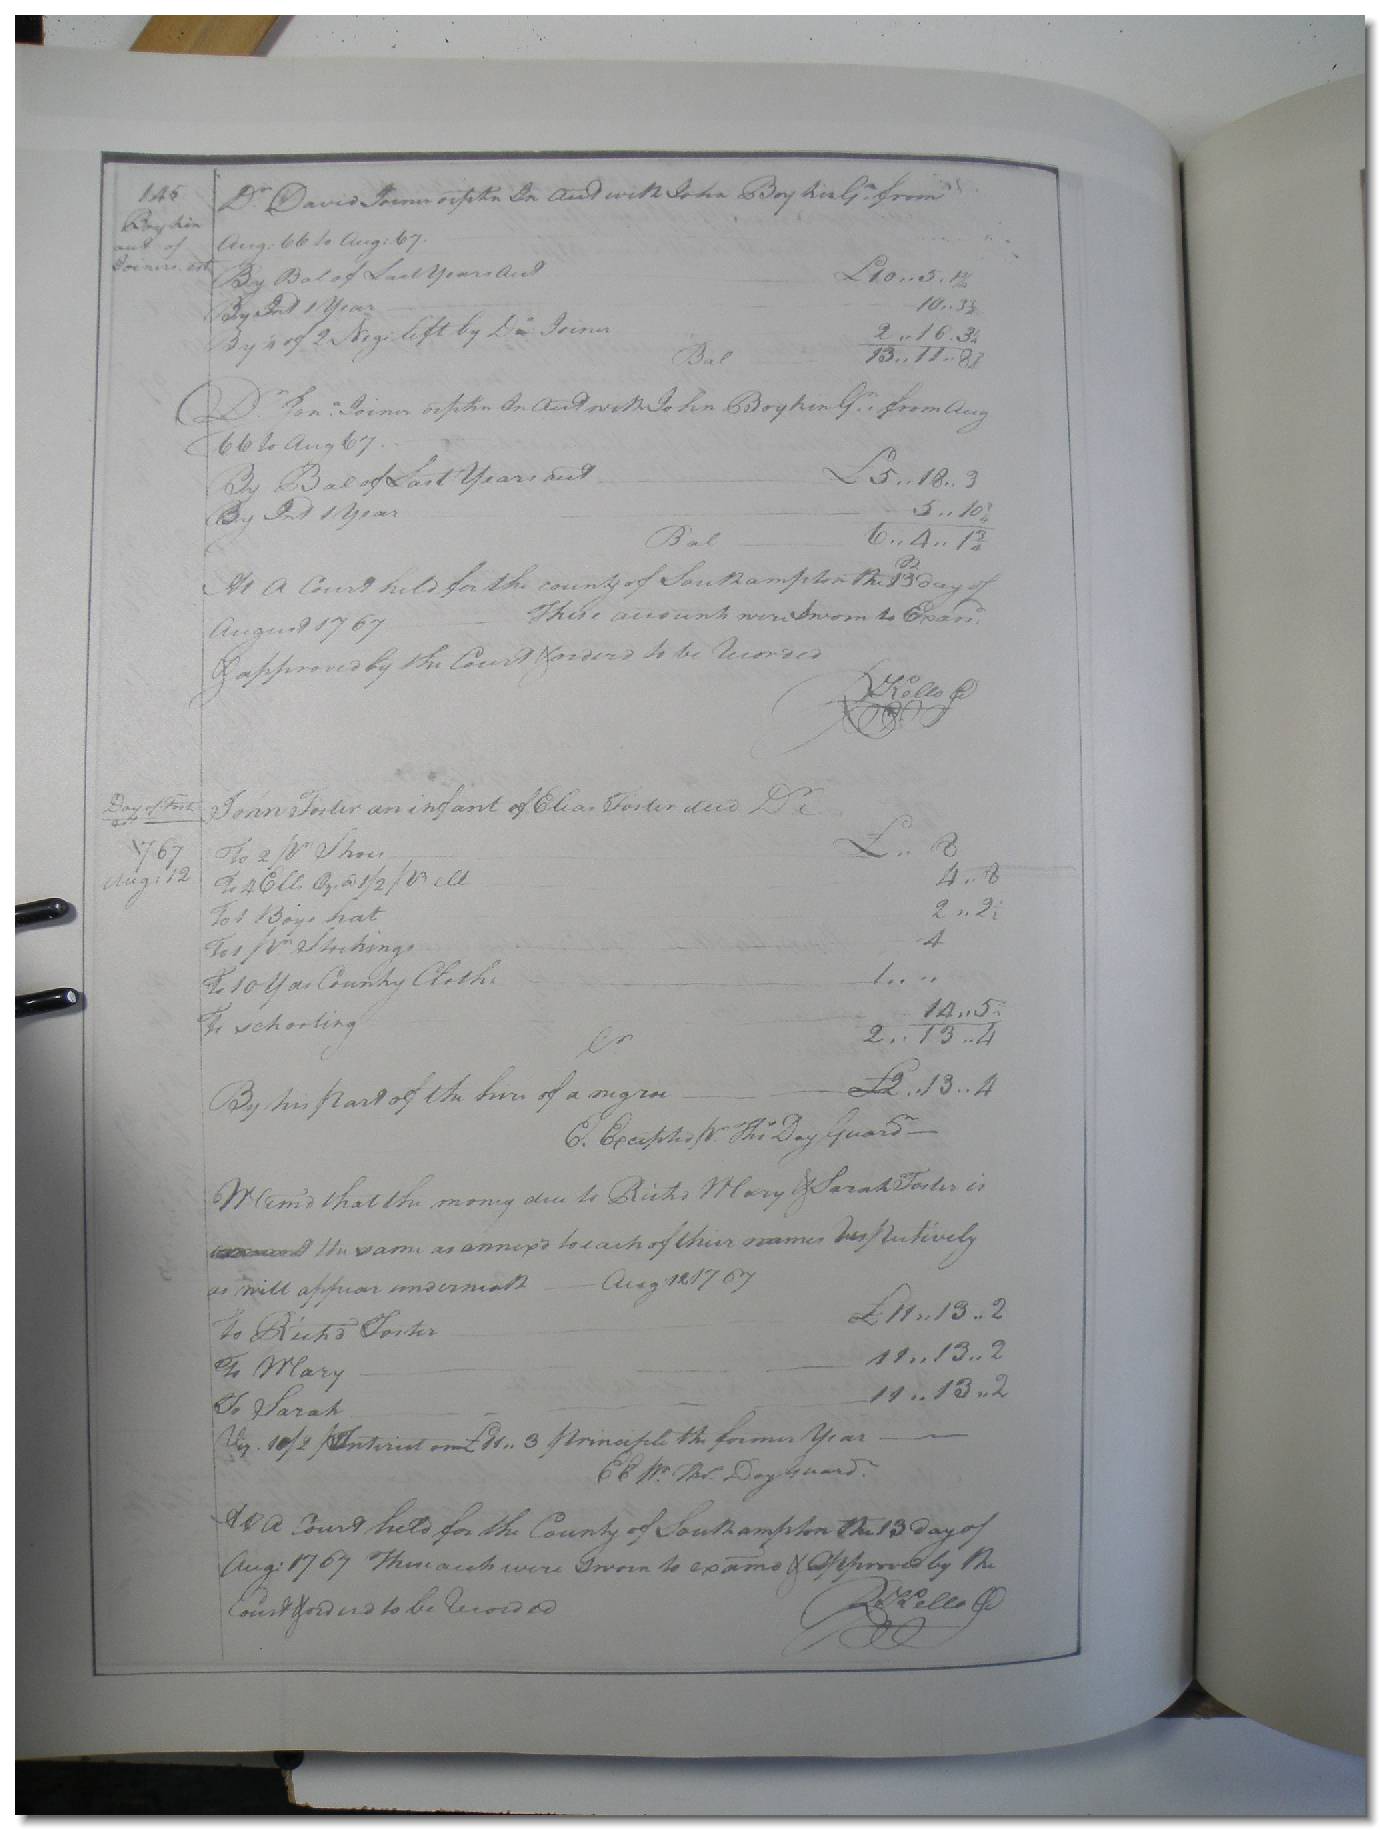 145
Boykin
aut of
Joiners est
Dr. David Joiner orphn In Aut with John Boykin Gn. from
Aug. 66 to Aug: 67.
By Bal of Last Years Aut £10..5..
By Int 1 Year 10..3½
By of 2 Neg: left by Joiner 2..16..
Bal 13..11..
Dr. Joiner orphn In Aut with John Boykin Gn. from Aug
66 to Aug 67.
By Bal of Last Years aut £5..18..3
By Int 1 Year 5..10¾
Bal 6..4..1¾
At A Court held for the county of Southampton the 13 day of
August 1767 These account were Sworn to Exam'd
& approved by the Court & orderd to be Recorded
R Kello C
Day of Fost.
John Foster an infant of Elias Foster decd Dr
1767
Aug: 12
To 2 pr Shoes £.. 8
To 4 Ells 1/2 pr Ell 4..8
To 1 Boys hat 2..2
To 1 pr Stockings 4
To 10 Yds Country Cloth 1.. ..
To schooling 14..5
2..13..4
Cr
By his part of the hire of a negroe £2..13..4
E. Excepted pr Thos Day Guardn
Mem'd that the money due to Richd Mary & Sarah Foster is
the same as annex'd to each of their names Respectively
as will appear underneath Aug 12 1767
To Richd Foster £11..13..2
To Mary 11..13..2
To Sarah 11..13..2
Interest on £11..3 principle the former Year
EE pr Thos. Day Guardn
At A Court held for the County of Southampton the 13 day of
Aug: 1767 These auts were Sworn to examd & Approved by the
Court & orderd to be Recorded R Kello C